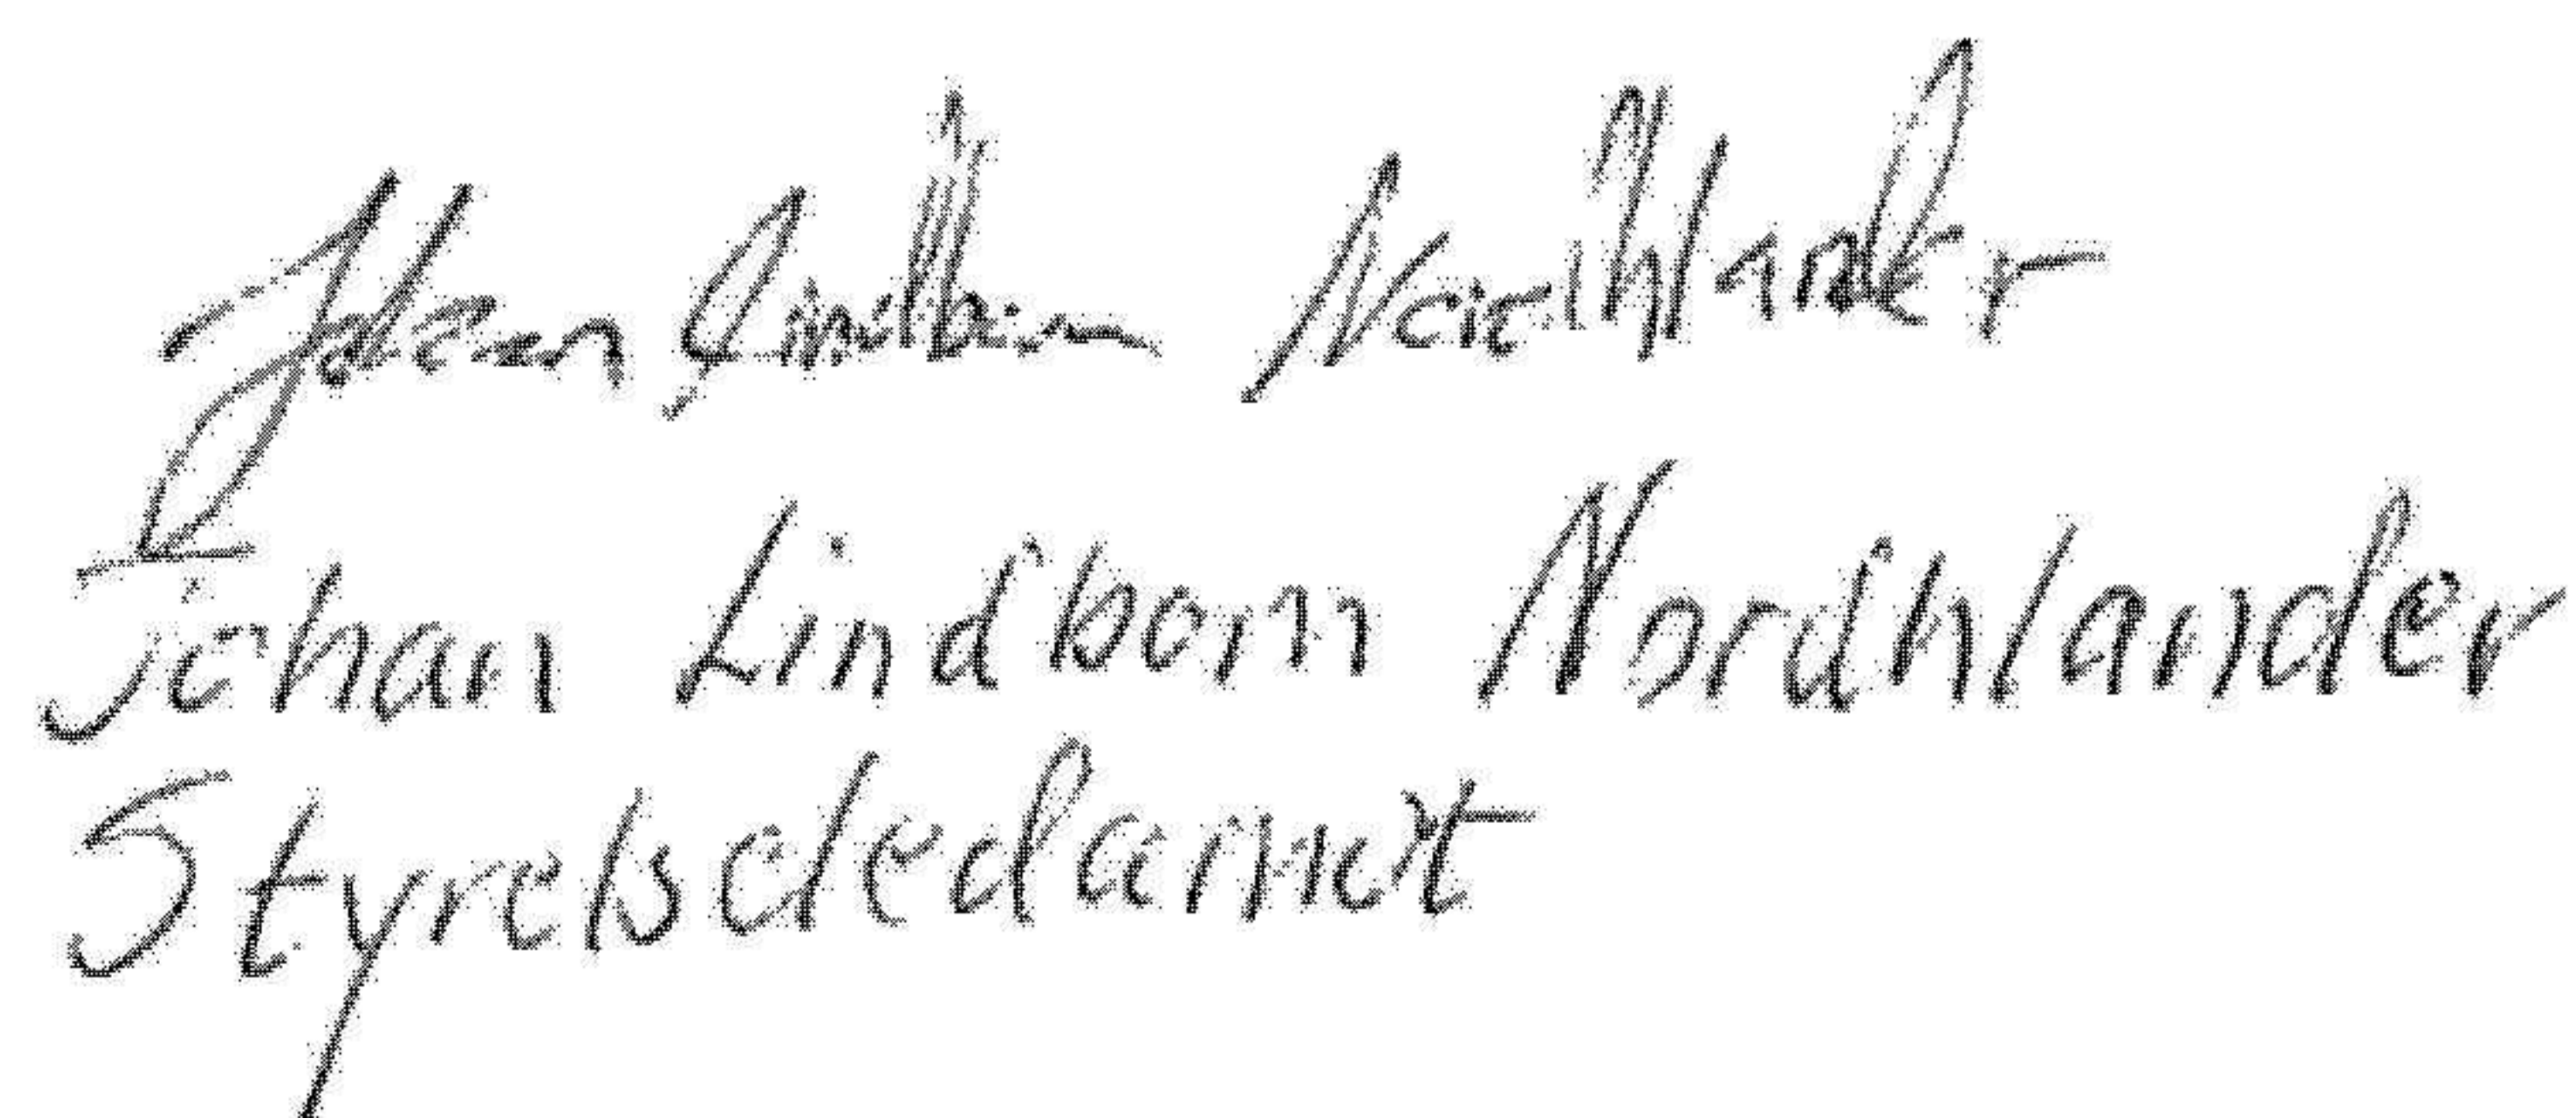 Johan Lindbom Nordhlander
Johan Lindbom Nordhlander
Styrelsdedamot